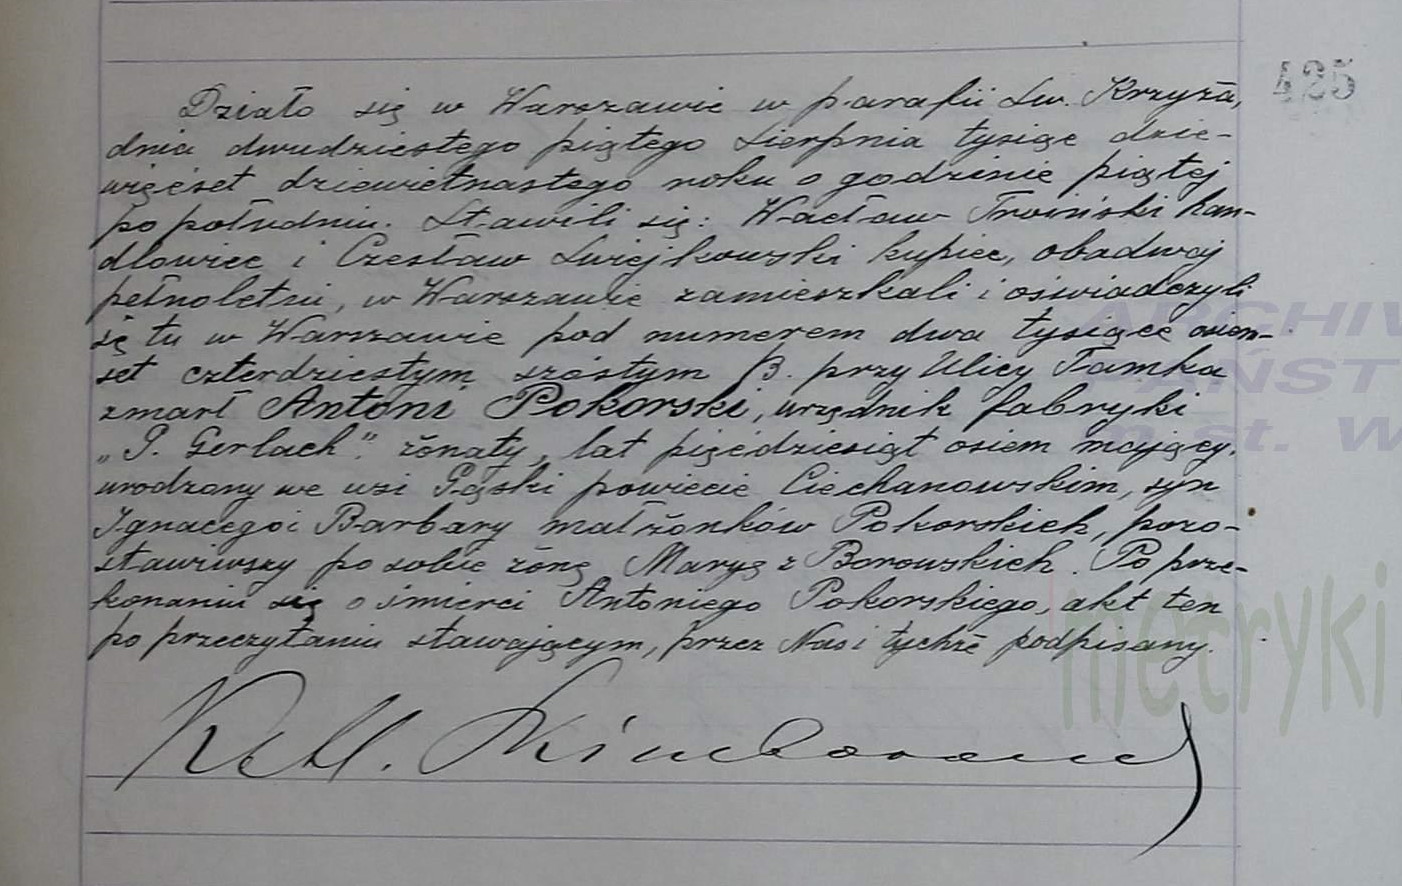 425
Działo się w Warszawie w parafii Św. Krzyża,
dnia dwudziestego piątego Sierpnia tysiąc dzie-
więćset dziewietnastego roku o godzinie piątej
po południu. Stawili się: Wacław Troiński han-
dlowiec i Czesław Świejkowski kupiec, obadwaj
pełnoletni, w Warszawie zamieszkali i oświadczyli
że tu w Warszawie pod numerem dwa tysiące osiem-
set czterdziestym szóstym B. przy Ulicy Tamka
zmarł Antoni Pokorski, urzędnik fabryki
„G. Gerlach". żonaty, lat pięćdziesiąt osiem mający,
urodzony we wsi Gąski powiecie Ciechanowskim, syn
Ignacego i Barbary małżonków Pokorskich, pozo-
stawiwszy po sobie żonę Maryę z Borowskich. Po prze-
konaniu się o śmierci Antoniego Pokorskiego, akt ten
po przeczytaniu stawającym, przez Nas i tychże podpisany.
ARCHIW
PAŃST
m.st. W
metryki